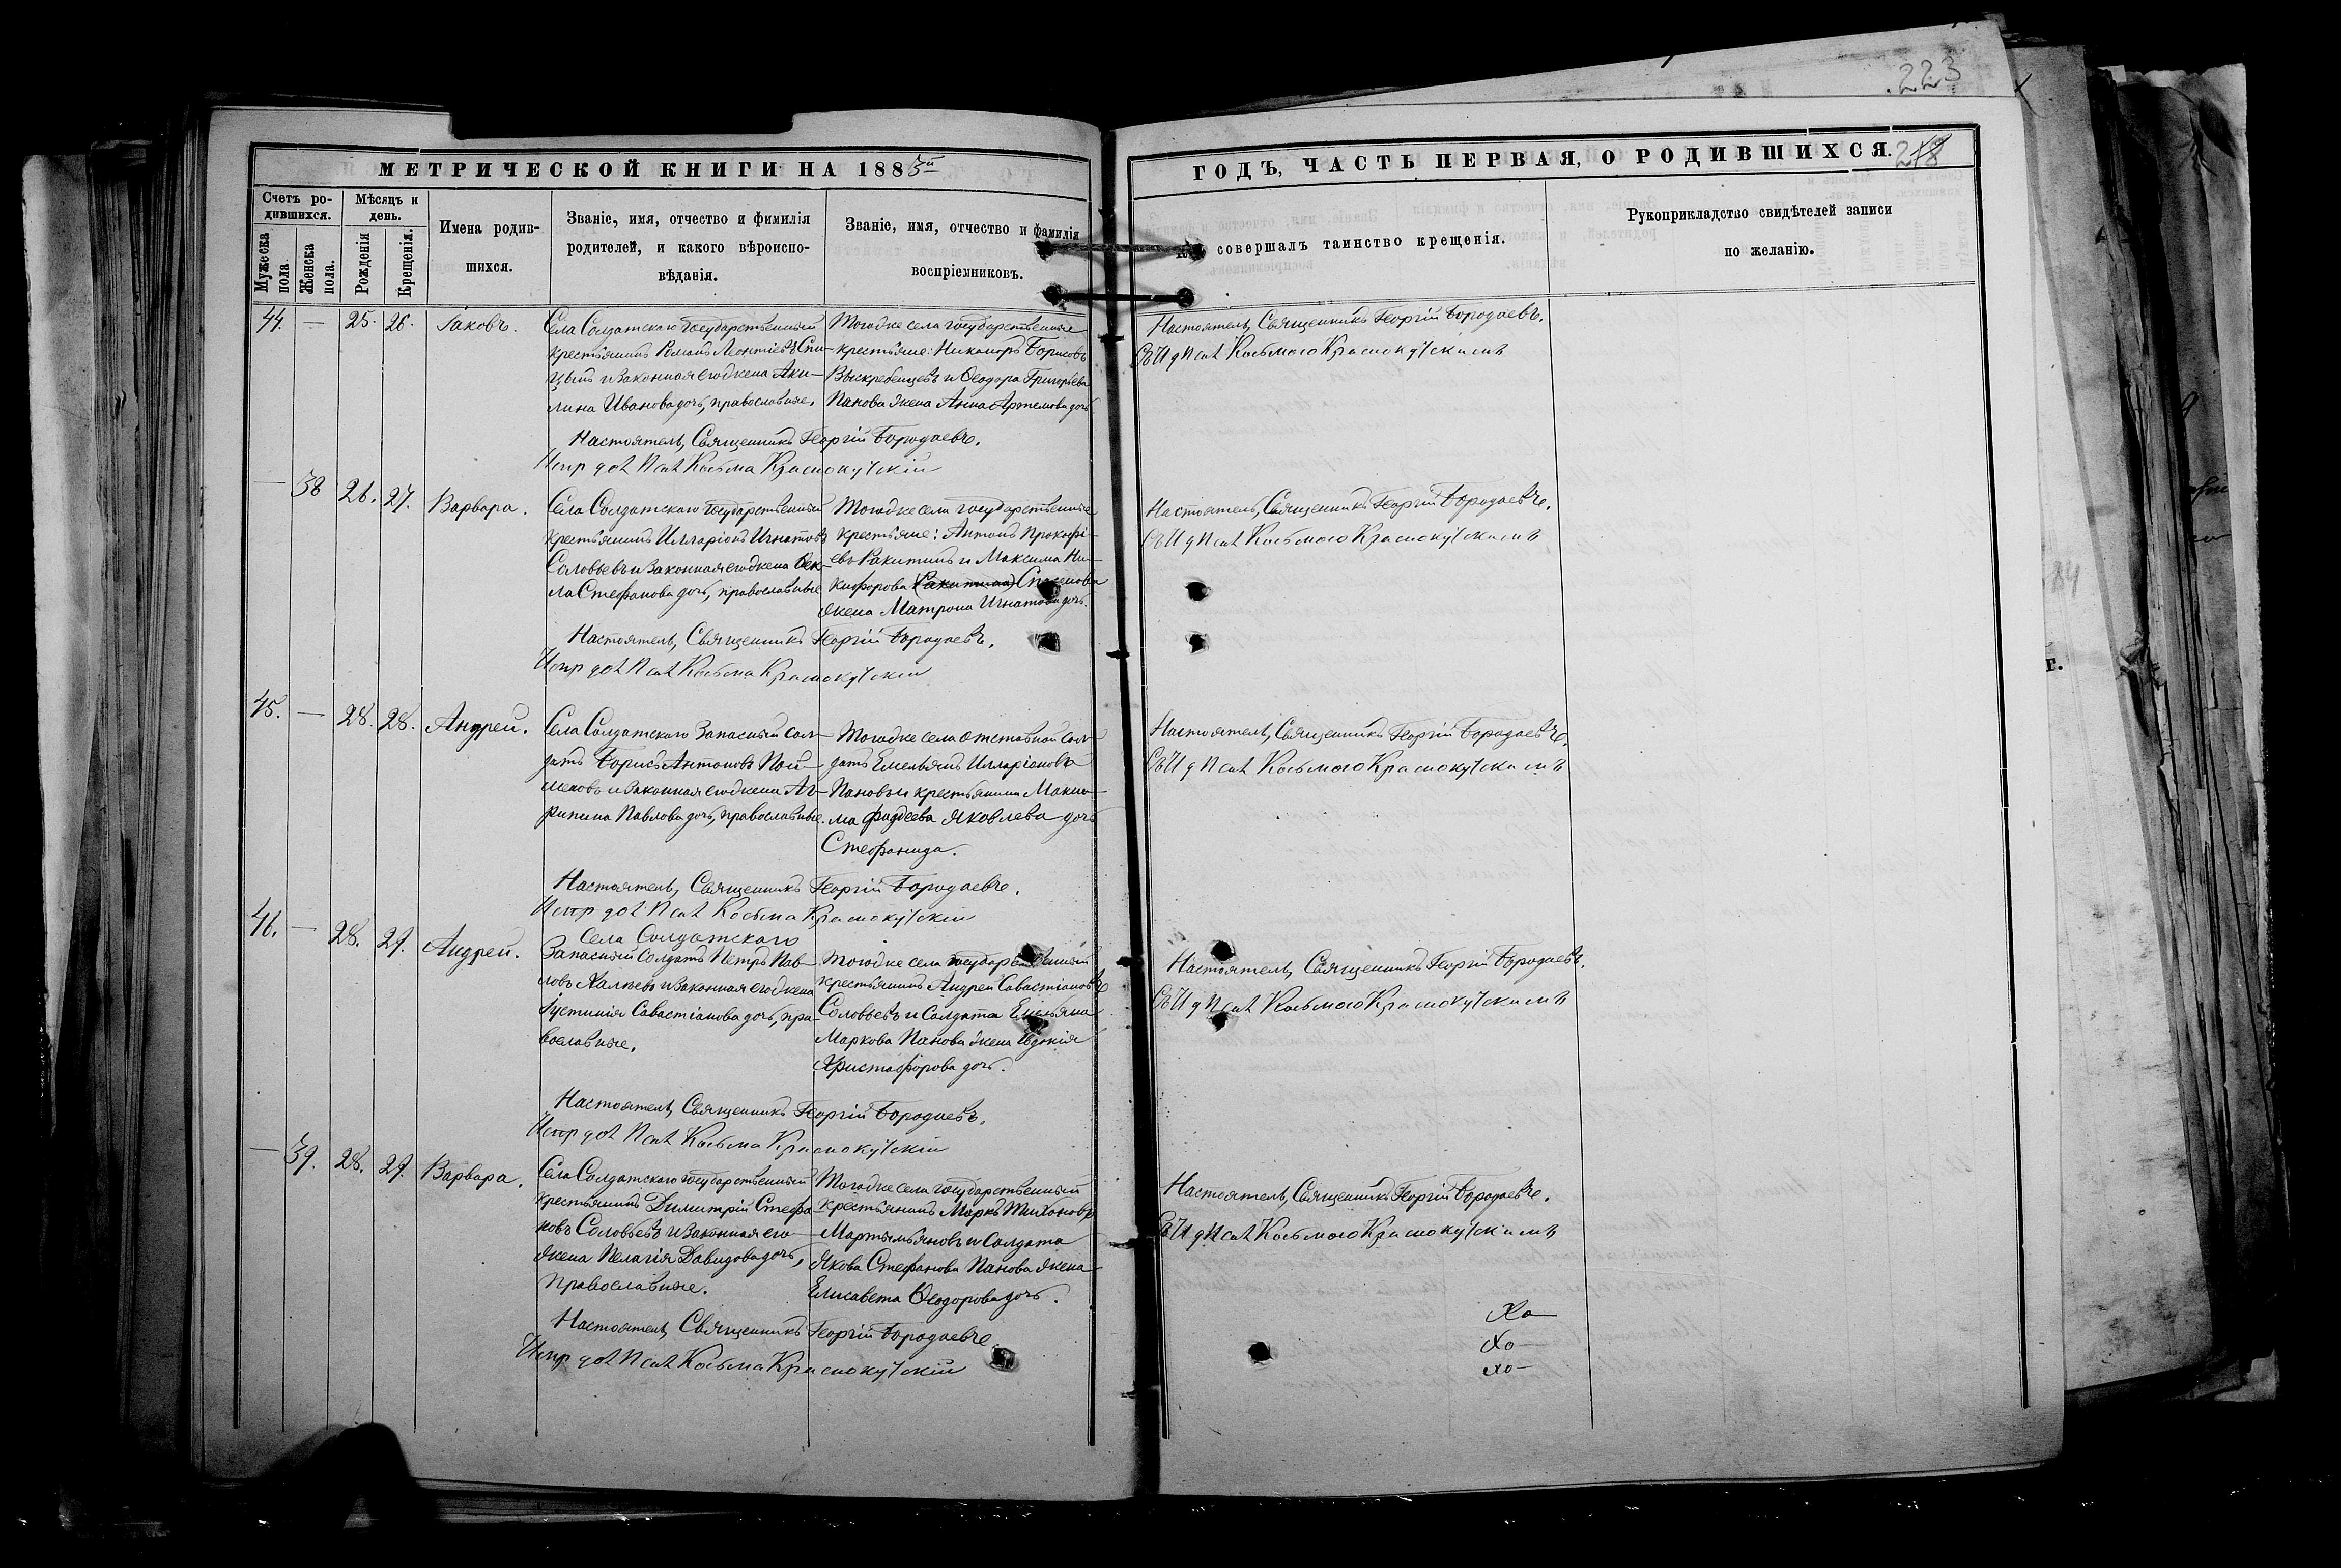 223
МЕТРИЧЕСКОЙ КНИГИ НА 1885й
ГОДЪ, ЧАСТЬ ПЕРВАЯ, О РОДИВШИХСЯ.
218
Счетъ ро-
дившихся.
Мужеска
пола.
Женска
пола.
Мѣсяцъ и
день.
Рожденія
Крещенія.
Имена родив-
шихся.
Званіе, имя, отчество и фимилія
родителей, и какого вѣроиспо-
вѣданія.
Званіе, имя, отчество и фамилія
воспріемниковъ.
совершалъ таинство крещенія.
Рукоприкладство свидѣтелей записи
по желанію.
44. — 25. 26. Іаковъ.
Села Солдатскаго государственный
крестьянинъ Романъ Леонтіевъ Спи-
цынъ и законная его жена Аки-
лина Иванова дочь, православные.
Тогоже села государственные
крестьяне: Никаноръ Борисовъ
Выскребенцевъ и Ѳеодора Григорьева
Панова жена Анна Артемова дочь
Настоятель, Священникъ Георгій Бородаевъ.
Испр дол Псал Косьма Краснокутскій
Настоятель, Священникъ Георгій Бородаевъ.
Съ И д Псал Косьмою Краснокутскимъ
— 38 26. 27. Варвара.
Села Солдатскаго государственный
крестьянинъ Илларіонъ Игнатовъ
Соловьевъ и законная его жена Ѳек-
ла Стефанова дочь, православные
Тогоже села государственные
крестьяне: Антонъ Прокофі-
евъ Ракитинъ и Максима Ни-
кифорова (Ракитина)
жена Матрона Игнатова дочь.
Настоятель, Священникъ Георгій Бородаевъ.
Испр дол Псал Косьма Краснокутскій
Настоятель, Священникъ Георгій Бородаевъ.
Съ И д Псал Косьмою Краснокутскимъ
45. — 28. 28. Андрей.
Села Солдатскаго Запасный сол-
датъ Борисъ Антоновъ Пой-
меновъ и законная его жена Аг-
рипина Павлова дочь, православные.
Тогоже села отставной сол-
датъ Емельянъ Илларіоновъ
Пановъ и крестьянина
Фаддеева Яковлева дочь
Стефанида.
Настоятель, Священникъ Георгій Бородаевъ.
Испр дол Псал Косьма Краснокутскій
Настоятель, Священникъ Георгій Бородаевъ.
Съ И д Псал Косьмою Краснокутскимъ
46. — 28. 29. Андрей.
Села Солдатскаго
Запасный Солдатъ Петръ Пав-
ловъ и законная его жена
Іустинія Савастіанова дочь, пра-
вославные.
Тогоже села государственный
крестьянинъ Андрей Савастіановъ
Соловьевъ и Солдата Емельяна
Маркова Панова жена Евдокія
Христофорова дочь.
Настоятель, Священникъ Георгій Бородаевъ.
Испр дол Псал Косьма Краснокутскій
Настоятель, Священникъ Георгій Бородаевъ.
Съ И д Псал Косьмою Краснокутскимъ
— 39. 28. 29. Варвара.
Села Солдатскаго государственный
крестьянинъ Димитрій Стефа-
новъ Соловьевъ и законная его
жена Пелагія Давидова дочь,
православные.
Тогоже села государственный
крестьянинъ Маркъ Тихоновъ
Мартемьяновъ и Солдата
Якова Стефанова Панова жена
Елисавета Ѳеодорова дочь.
Настоятель, Священникъ Георгій Бородаевъ.
Испр дол Псал Косьма Краснокутскій
Настоятель, Священникъ Георгій Бородаевъ.
Съ И д Псал Косьмою Краснокутскимъ